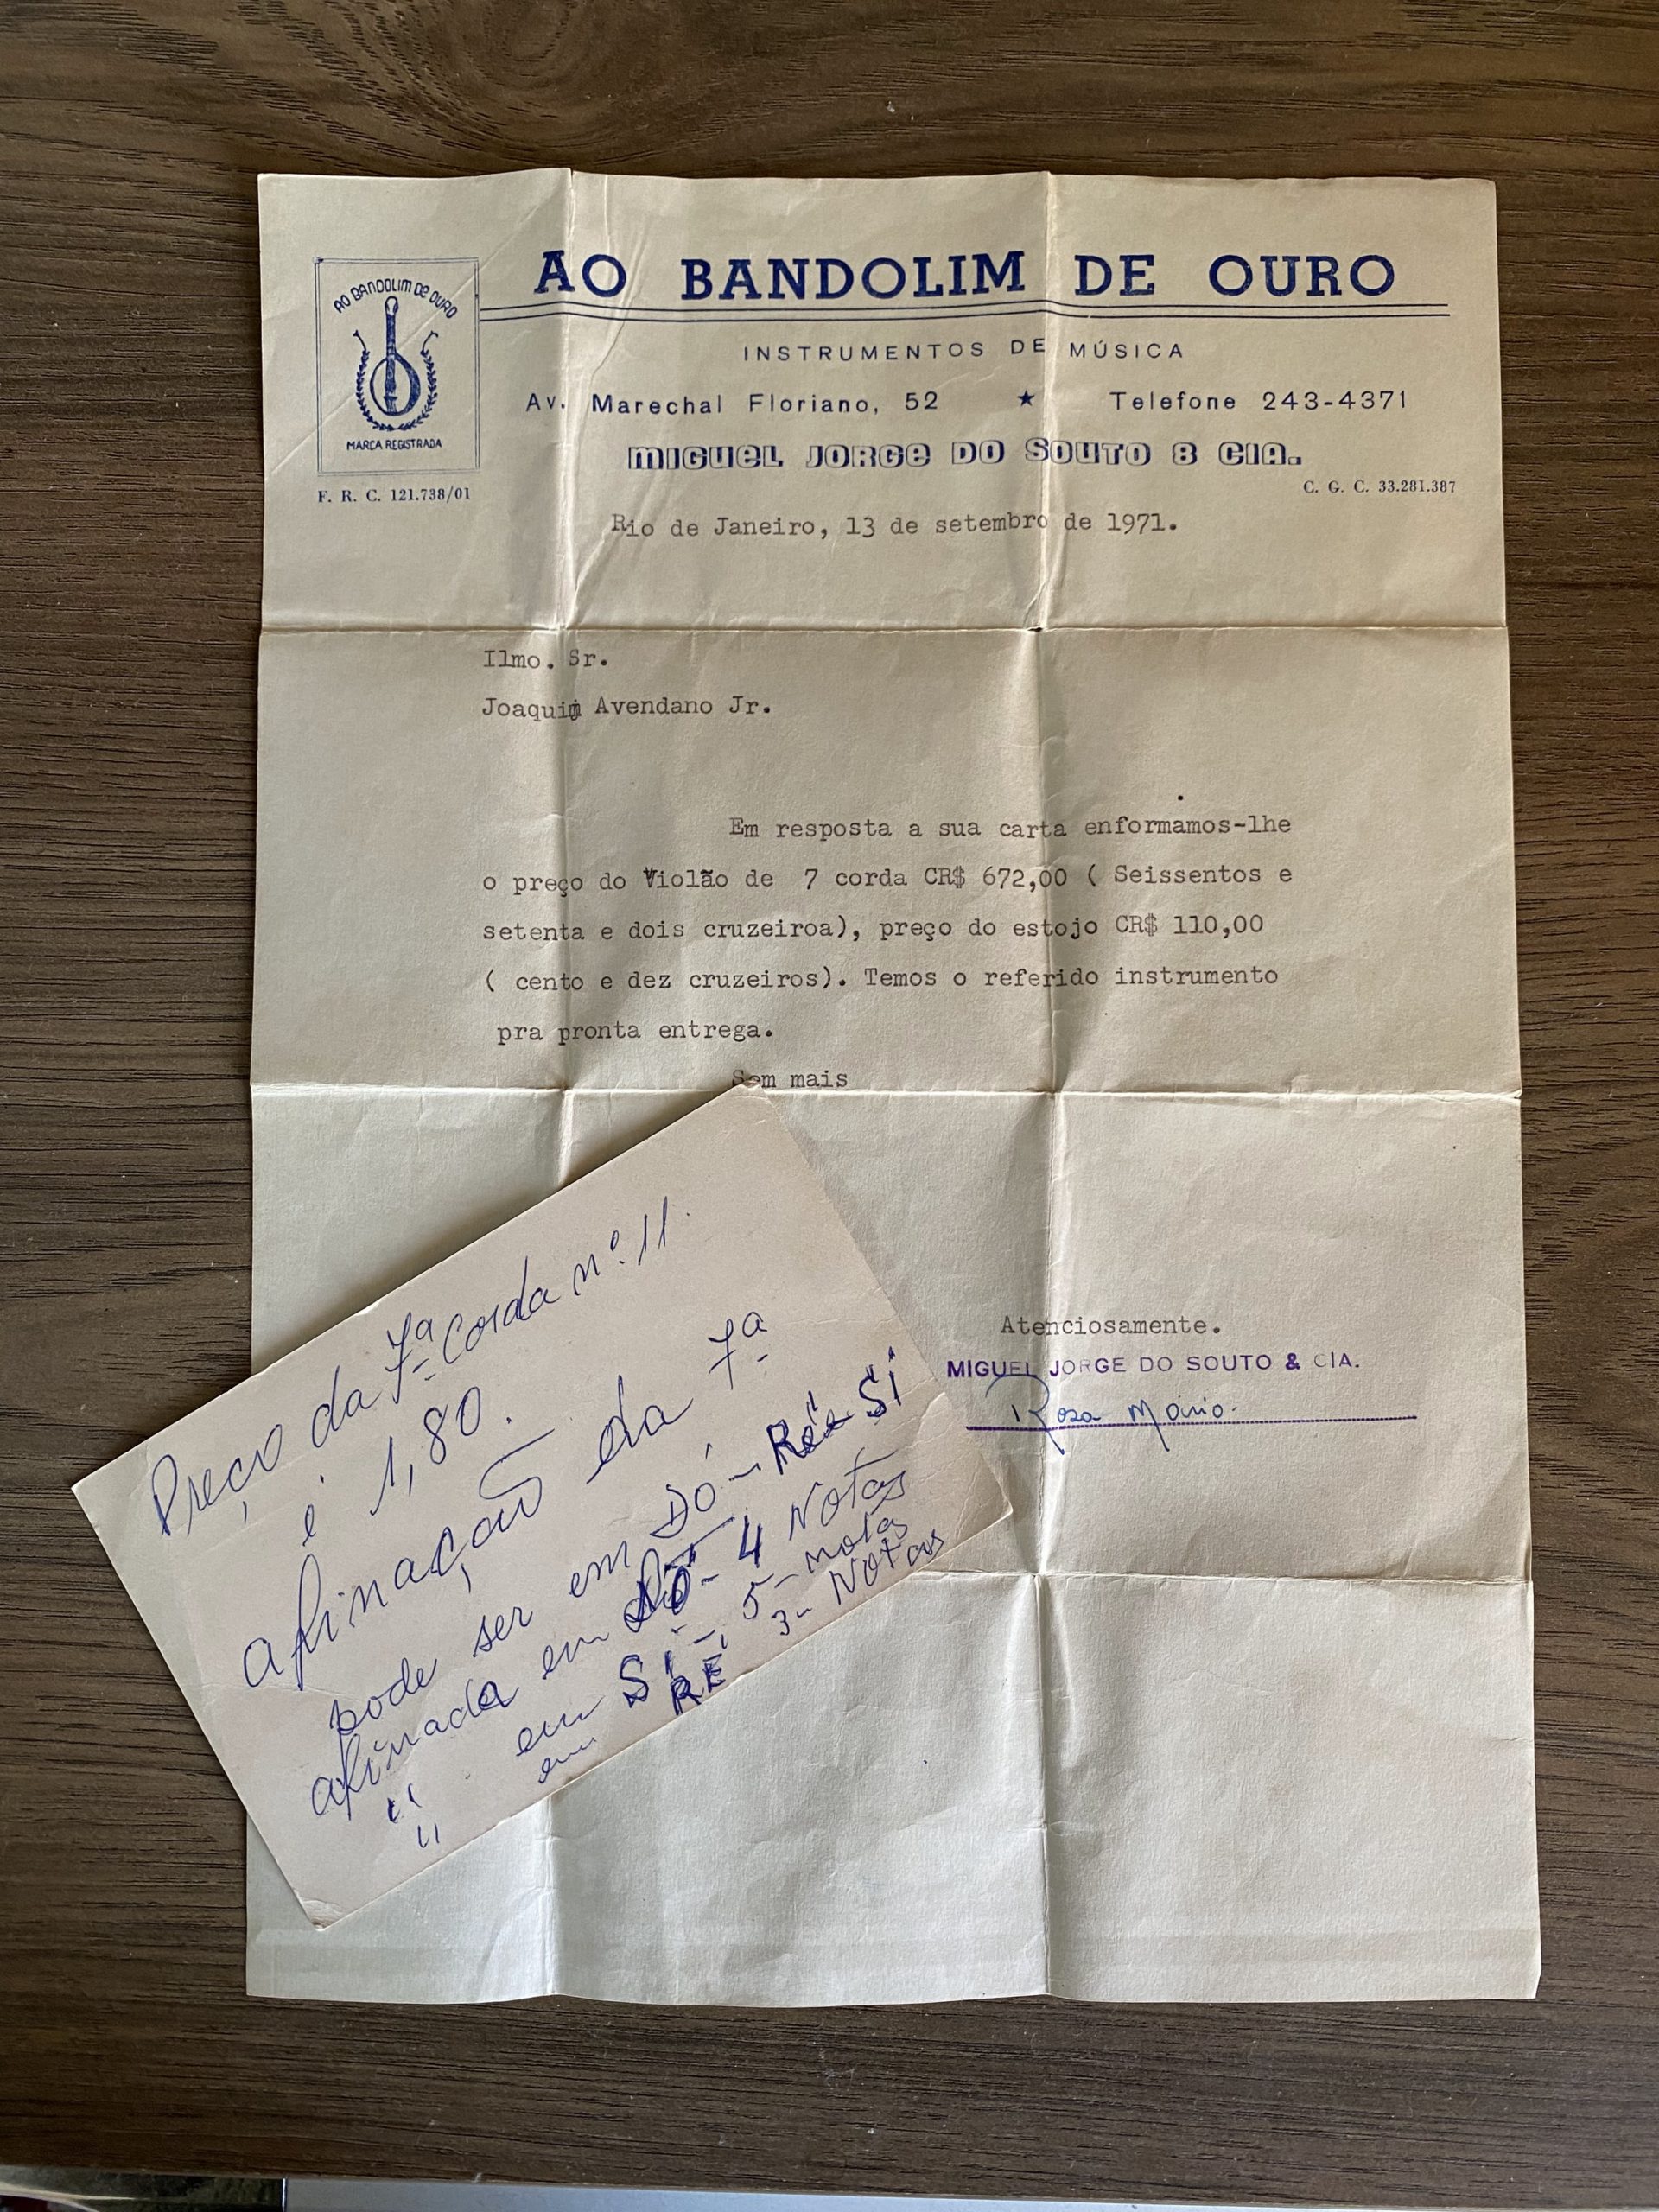 AO BANDOLIM DE OURO
AO BANDOLIM DE OURO
MARCA REGISTRADA
F. R. C. 121.738/01
INSTRUMENTOS DE MÚSICA
Av. Marechal Floriano, 52 ★ Telefone 243-4371
MIGUEL JORGE DO SOUTO & CIA.
C. G. C. 33.281.387
Rio de Janeiro, 13 de setembro de 1971.
Ilmo. Sr.
Joaquim Avendano Jr.
Em resposta a sua carta enformamos-lhe
o preço do Violão de 7 corda CR$ 672,00 ( Seissentos e
setenta e dois cruzeiroa), preço do estojo CR$ 110,00
( cento e dez cruzeiros). Temos o referido instrumento
pra pronta entrega.
Sem mais
Atenciosamente.
MIGUEL JORGE DO SOUTO & CIA.
Rosa
Preço da 7ª Corda nº. 11.
é 1,80.
afinação da 7ª
pode ser em DÓ - Ré e SI
afinada em DÓ - 4 Notas
" em SI - 5 - notas
" em RÉ 3 - Notas